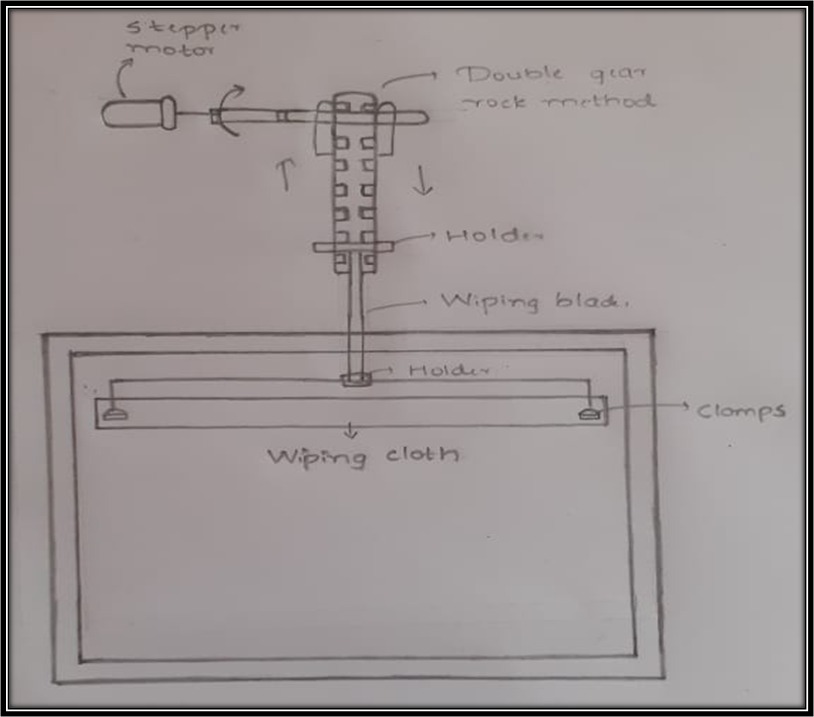 stepper
motor
Double gear
rock method
Holder
Wiping blade.
Holder
Clomps
Wiping cloth